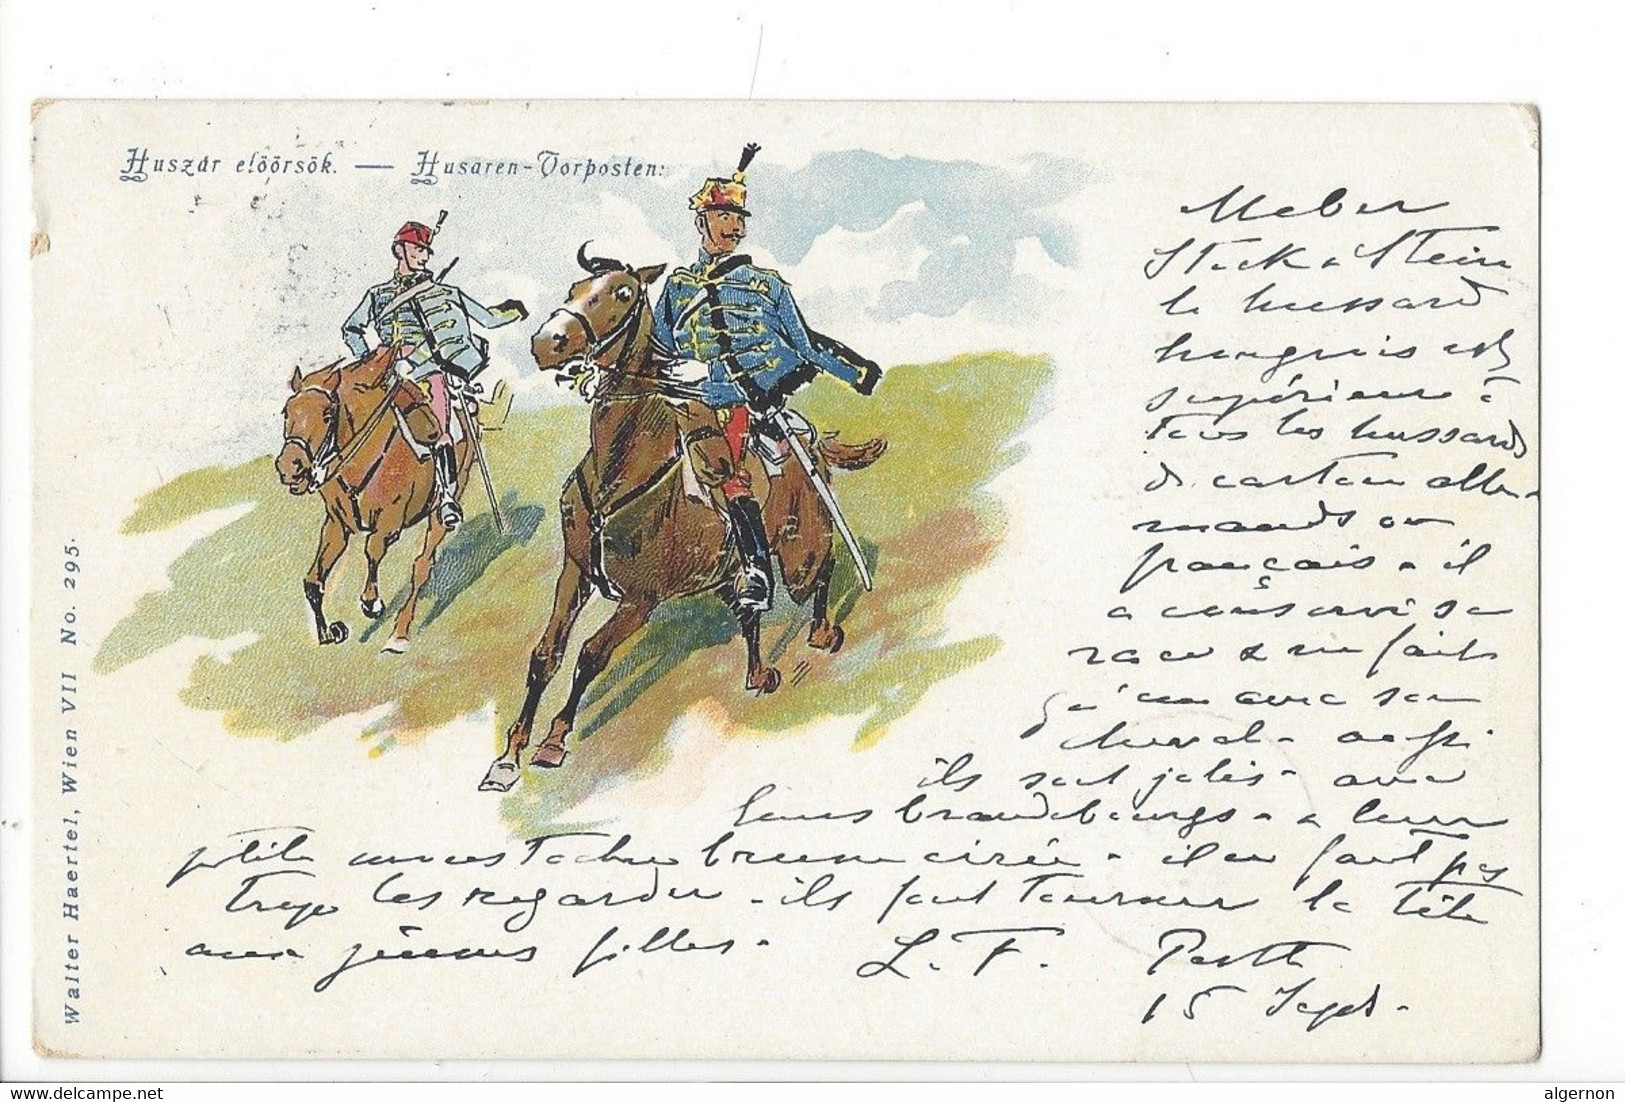 Huszár előőrsök. — Husaren-Vorposten.
Walter Haertel, Wien VII No. 295.
Ueber
Stock & Stein
le hussard
hongrois est
supérieur à
tous les hussards
de carton alle-
mands ou
français - il
a conservé sa
race & ne fait
qu'un avec son
cheval - aussi
ils sont jolis - avec
leurs brandebourgs - & leur
p'tite moustache brune cirée - il ne faut pas
trop les regarder - ils font tourner la tête
aux jeunes filles -
L. F. Pesth
15 Sept.
delcampe.net
algernon